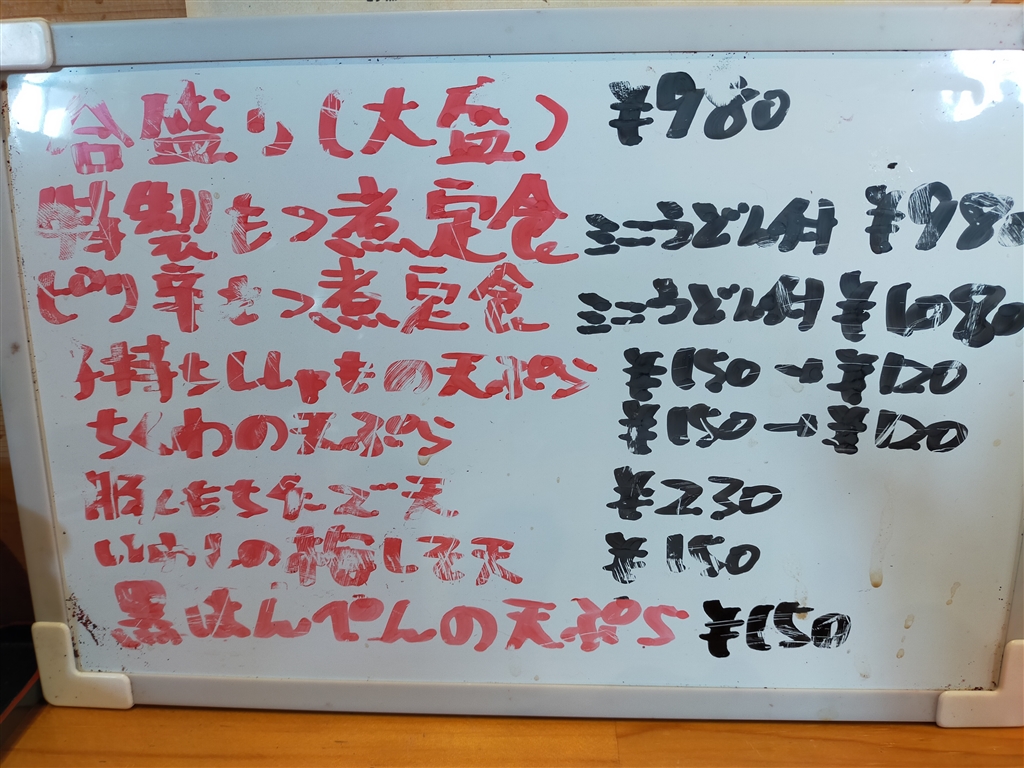 合盛り(大盆) ¥980
特製もつ煮定食 ミニうどん付 ¥980
ピリ辛もつ煮定食 ミニうどん付 ¥1080
子持ちししゃもの天ぷら ¥150→¥120
ちくわの天ぷら ¥150→¥120
豚しもちたこ天 ¥230
いわしの梅しそ天 ¥150
黒はんぺんの天ぷら ¥150